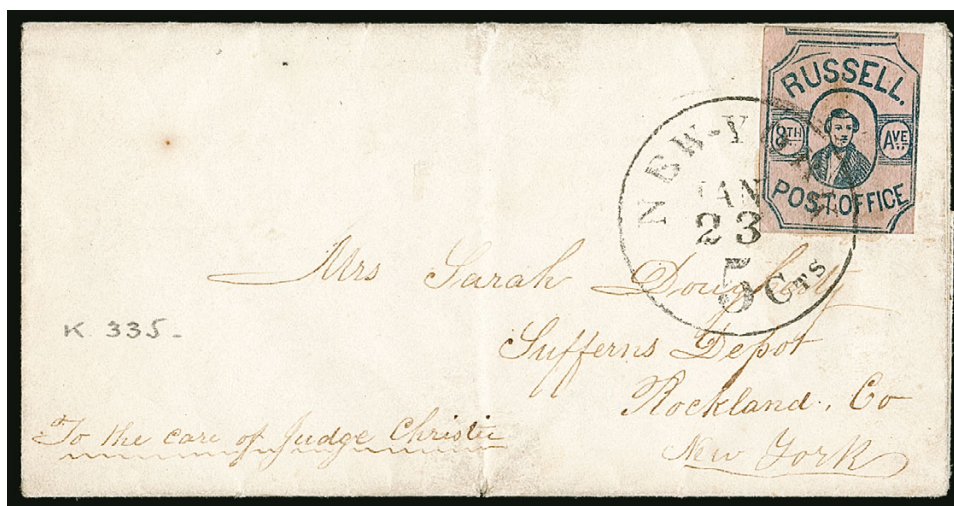 RUSSELL.
8TH AVE
POST OFFICE
NEW-YORK
JAN
23
5 Cts
Mrs Sarah Dougherty
Sufferns Depot
Rockland. Co
New York
K 335-
To the care of Judge Christie